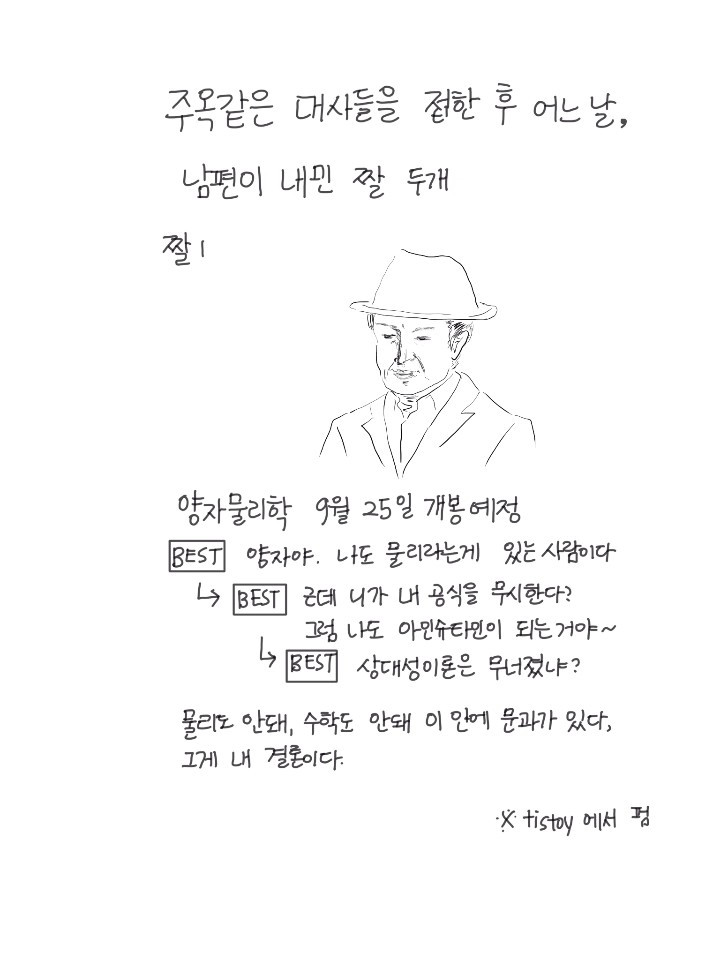 주옥같은 대사들을 접한 후 어느 날,
남편이 내민 짤 두개
짤 1
양자물리학 9월 25일 개봉예정
BEST 양자야. 나도 물리라는게 있는 사람이다
↳ BEST 근데 니가 내 공식을 무시한다?
그럼 나도 아인슈타인이 되는거야~
↳ BEST 상대성이론은 무너졌냐?
물리도 안돼, 수학도 안돼 이 안에 문과가 있다,
그게 내 결론이다.
※ tistoy 에서 펌